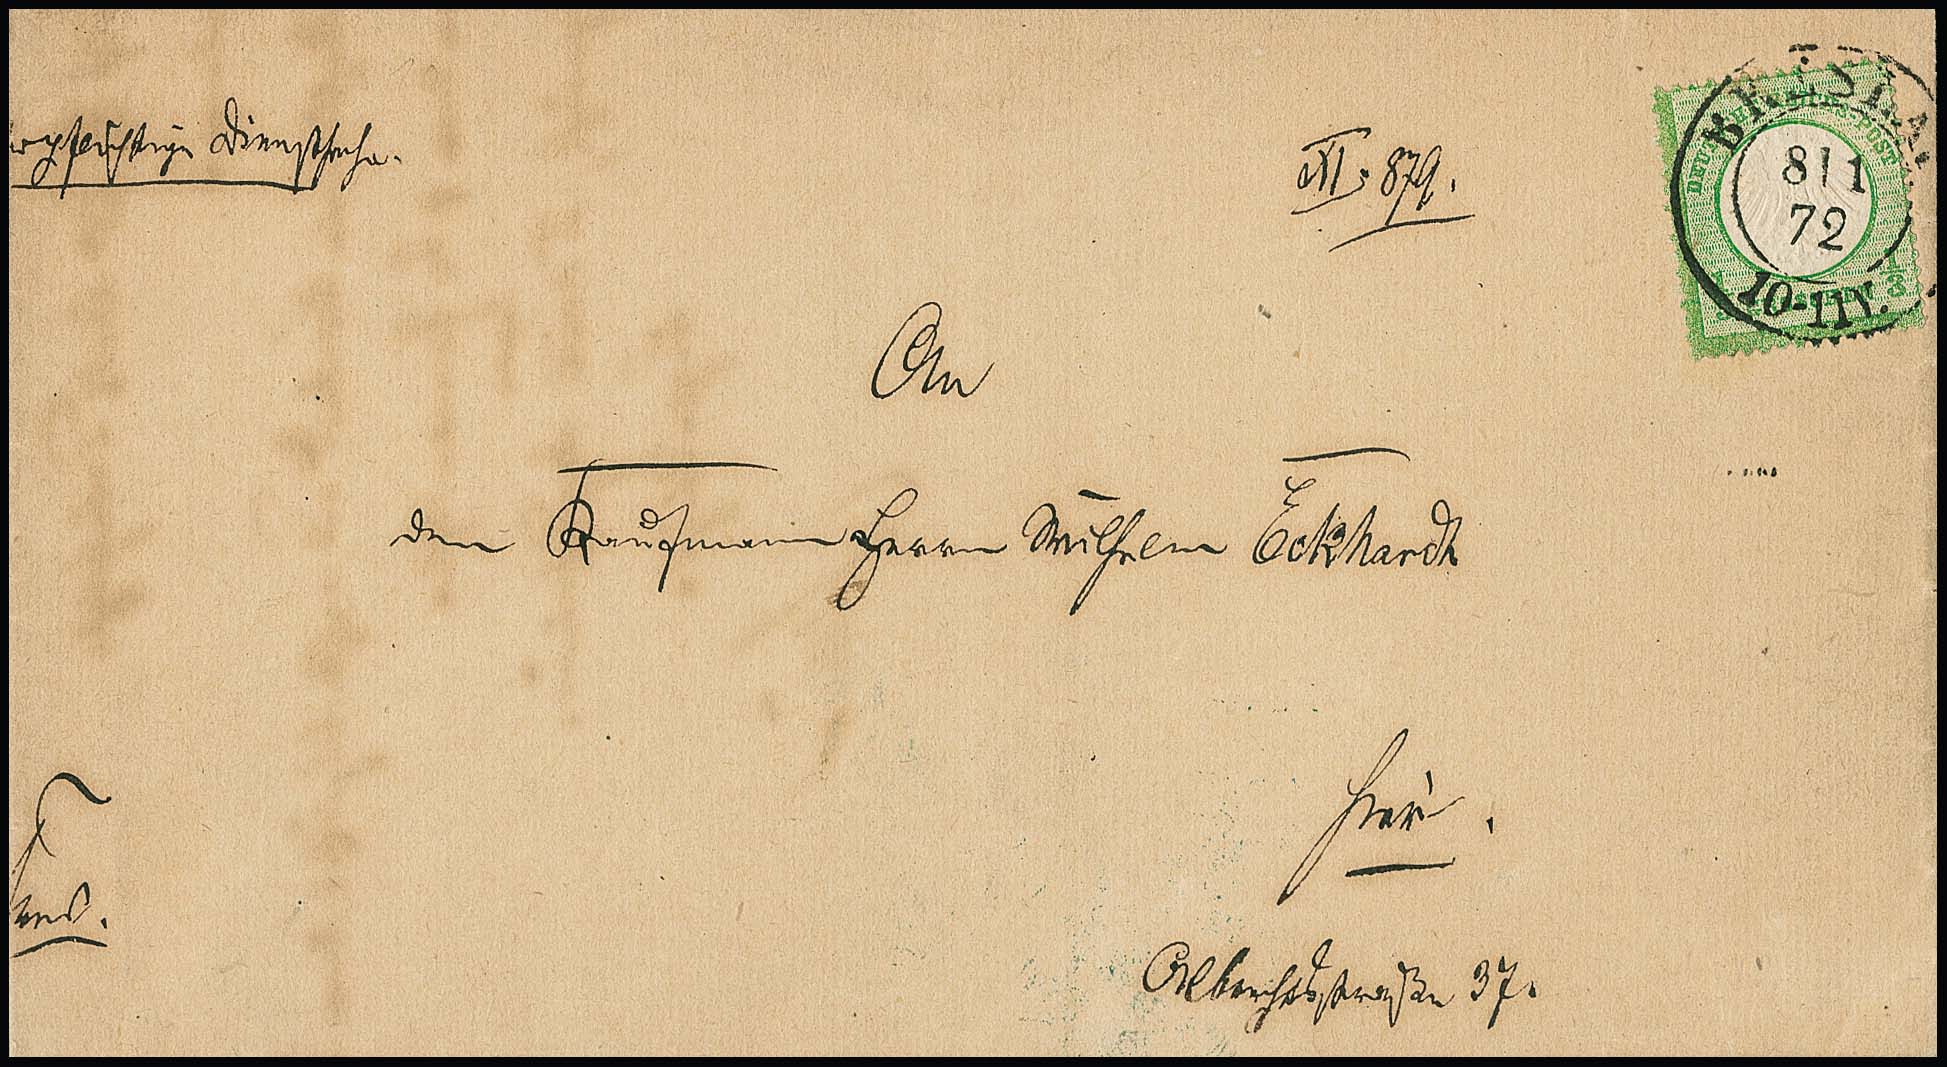 pflichtige Dienstsache.
XI. 879.
BRESLAU
8 11
72
10-11V.
DEUTSCHE REICHS-POST
1/3
An
den Kaufmann Herrn Wilhelm Eckhardt
hier.
Albrechtsstraße 37.